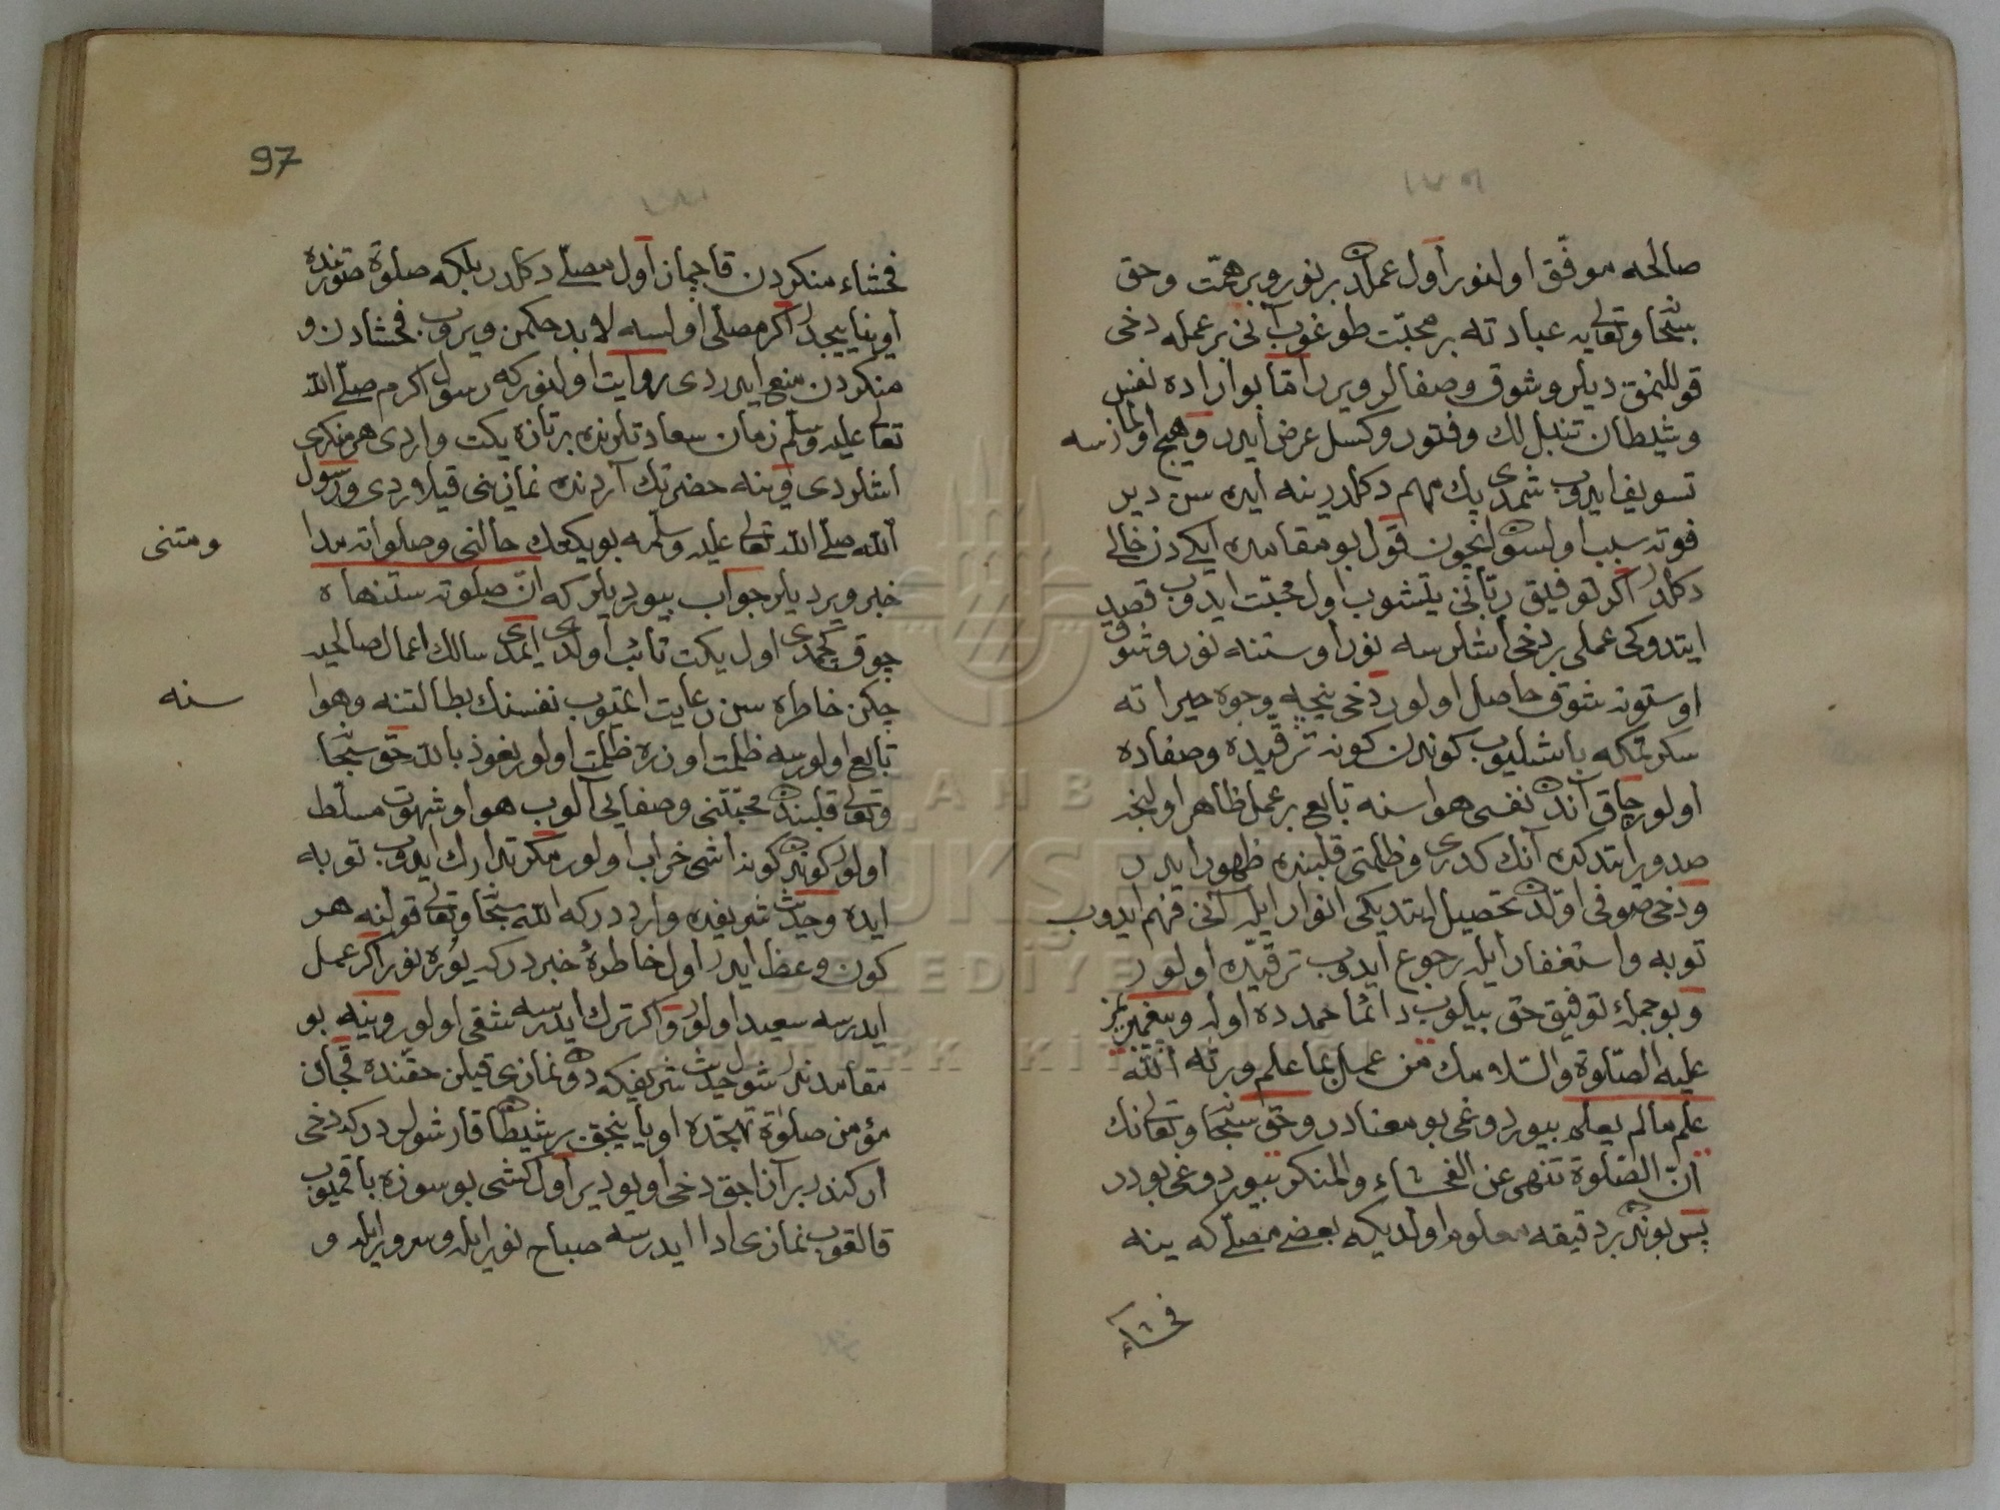 صالحه موفّق اولنور اول عملدن بر نور و بر همّت و حق
سبحانه و تعالیه عبادته بر محبّت طوغوب آنی بر عمله دخی
قوللنمق دیلر و شوق و صفالر ویرر امّا بو ارراده نفس
و شیطان تنبللك و فتور و كسل عرض ایدر و هیچ اولمازسه
تسویف ایدوب شمدی پك مهم دكلدر ینه ایده سن دیر
فوته سبب اولسون ایچون اول بو مقامده ایكیدن خالی
دكلدر اكر توفیق ربّانی یتشوب اول محبّت ایدوب قصد
ایتدوكی عملی بر دخی اشلرسه نور اوستنه نور و شوق
اوستونه شوق حاصل اولور دخی نیجه وجوه خیراته
سكرتمكه باشلیوب كوندن كونه ترقیده و صفاده
اولور چاق آندن نفسی هواسنه تابع بر عمل ظاهر اولیجه
صدور ایتدكده آنك كدری و ظلمتی قلبنده ظهور ایدر
و دخی صوفی اولدن تحصیل ایتدیكی انوار ایله آنی فهم ایدوب
توبه و استغفار ایله رجوع ایدوب ترقیده اولور
و بو جمله توفیق حق بیلوب دائما حمدده اوله و پیغمبریمز
علیه الصّلوة والسّلامك من عمل بما علم ورثه الله
علم مالم یعلم بیوردوغی بو معنادر و حق سبحانه و تعالینك
انّ الصّلوة تنهی عن الفحشاء والمنكر بیوردوغی بودر
پس بوندن بر دقیقه معلوم اولدیكه بعض مصلّی كه ینه
فحشاء
97
فحشاء منكردن قاچماز اول مصلّی دكلدر بلكه صلوة صورتنده
اوینایجیدر اكر مصلّی اولسه لا بد حكمن ویروب فحشادن و
منكردن منع ایدردی روایت اولنوركه رسول اكرم صلّی الله
تعالی علیه وسلّم زمان سعادتلرنده بر تازه یكت واردی هر منكری
اشلردی و ینه حضرتك آردنده نمازینی قیلوردی و رسول
الله صلّی الله تعالی علیه وسلّمه بو یكیدك حالنی و صلواته مدا
ومتنی
خبر ویردیلر جواب بیوردیلر كه انّ صلوته ستنهاه
چوق كچمدی اول یكت تائب اولدی ایمدی سالك اعمال صالحه
چكن خاطره سن رعایت ایتمیوب نفسنك بطالتنه و هوا
سنه
تابع اولورسه ظلمت اوزره ظلمت اولور نعوذ بالله حق سبحانه
و تعالی قلبندن محبّتنی و صفایی آلوب هوا و شهوت مسلّط
اولور كوندن كونه اشی خراب اولور مكر تدارك ایدوب توبه
ایده و حدیث شریفده وارددر كه الله سبحانه و تعالی قولنه هر
كون وعظ ایدر اول خاطرهٔ خبردر كه یوره نور اكر عمل
ایدرسه سعید اولور و اكر ترك ایدرسه شقی اولور و ینه بو
مقامدندر شول حدیث شریفكه دون نمازی قیلن حقنده قچان
مؤمن صلوة تهجّده اویانیجق بر شیطان قارشولر دركه دخی
اركندر بر آزاجق دخی اویو دیر اول كشی بو سوزه باقمیوب
قالقوب نمازی ادا ایدرسه صباح نور ایله و سرور ایله و